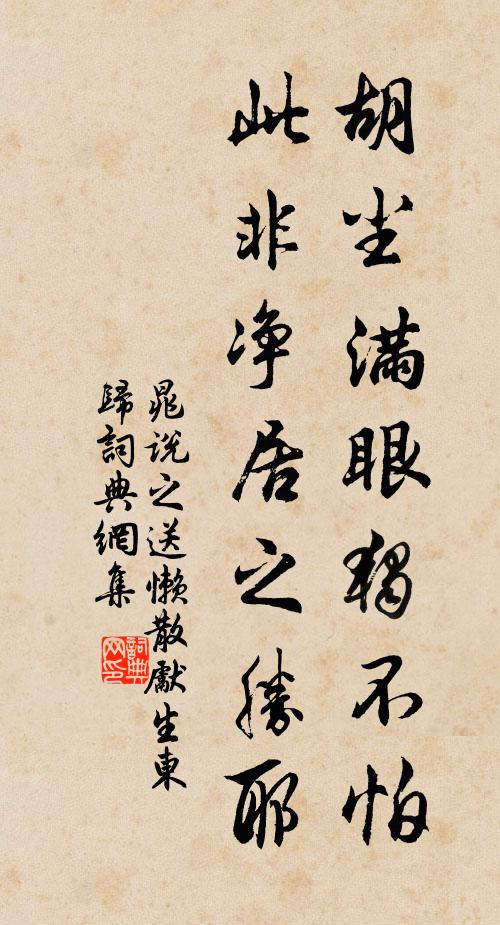 胡尘满眼独不怕
此非净居之勝耶
晁说之送懒散獻生東
歸詞典網集
詞典
网印